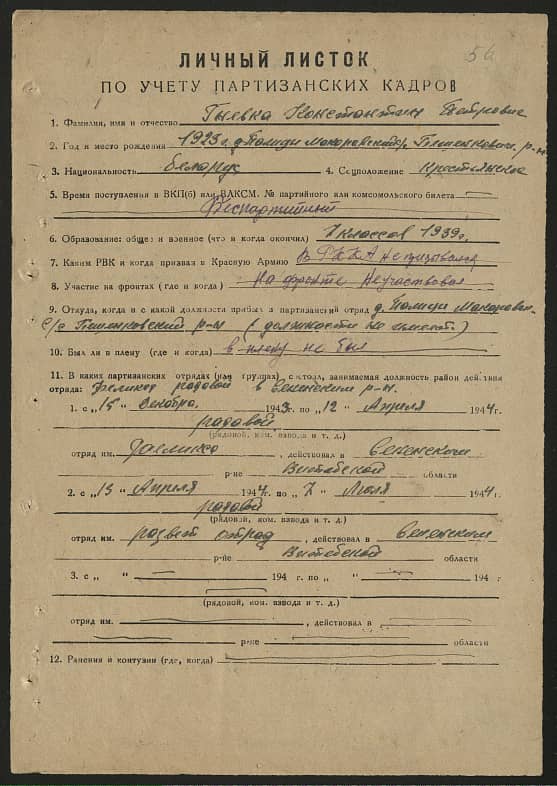 56
ЛИЧНЫЙ ЛИСТОК
ПО УЧЕТУ ПАРТИЗАНСКИХ КАДРОВ
1. Фамилия, имя и отчество Гылевка Константин Петрович
2. Год и место рождения 1923 г. д. Полиди Макаровский р-н
3. Национальность белорус 4. Соцположение Крестьянское
5. Время поступления в ВКП(б) или ВЛКСМ. № партийного или комсомольского билета —
Беспартийный
6. Образование: общее и военное (что и когда окончил) 7 классов 1939 г.
7. Каким РВК и когда призван в Красную Армию В РККА не призывался
8. Участие на фронтах (где и когда) На фронте не участвовал
9. Откуда, когда и с какой должности прибыл в партизанский отряд д. Полиди
с/с р-н (должности не имел.)
10. Был ли в плену (где и когда) в плену не был
11. В каких партизанских отрядах (или группах) состоял, занимаемая должность район действия
отряда: рядовой в р-н.
1. с „15" Декабря 1943 г. по „12" Апреля 1944 г.
рядовой
(рядовой, ком. взвода и т. д.)
отряд им. , действовал в
р-не Витебской области
2. с „13" Апреля 1944 г. по „7" Июля 1944 г.
рядовой
(рядовой, ком. взвода и т. д.)
отряд им. развед отряд , действовал в
р-не Витебской области
3. с „ " — 194 г. по „ " — 194 г
(рядовой, ком. взвода и т. д.)
отряд им. — , действовал в —
— р-не — области
12. Ранения и контузии (где, когда) —